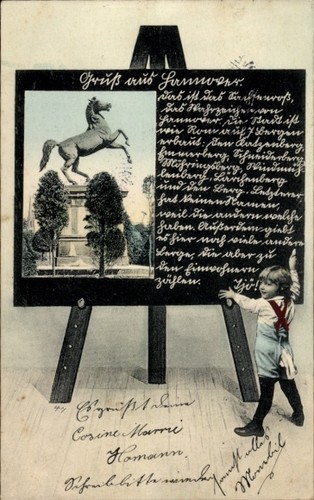 Gruß aus Hannover.
Das ist das Sachsenroß,
das Wahrzeichen von
Hannover, die Stadt ist
wie Rom auf 7 Bergen
erbaut: den Katzenberg,
Emmerberg, Schneiderberg
Möhringsberg, Windmüh-
lenberg, Lärchenberg
und den Berg. Letzterer
hat keinen Namen,
weil die andern welche
haben. Außerdem giebt
es hier noch viele andere
Berge, die aber zu
den Einwohnern
zählen.
Es grüßt deine
Cosine Marrie
Homann.
Schreibe bitte wieder